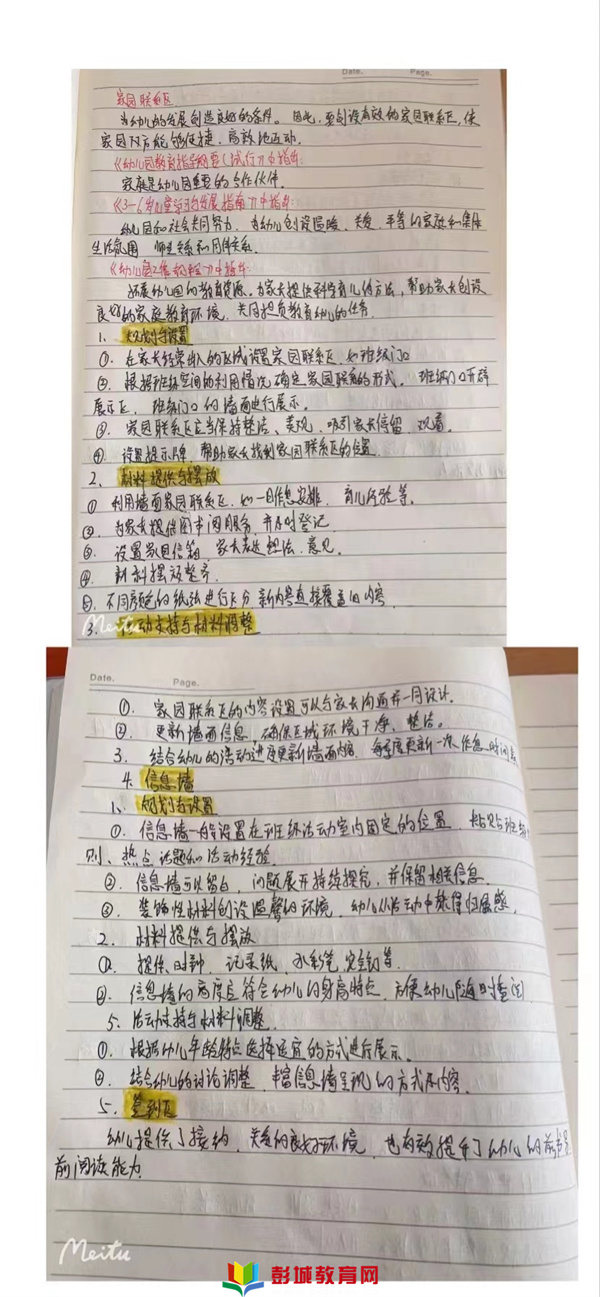 Date. Page.
家园联系区
为幼儿的发展创造良好的条件。因此,要创设有效的家园联系区,使
家园双方能够便捷、高效地互动。
《幼儿园教育指导纲要(试行)》中指出:
家庭是幼儿园重要的合作伙伴。
《3-6岁儿童学习与发展指南》中指出:
幼儿园和社会共同努力,为幼儿创设温暖、关爱、平等的家庭和集体
生活氛围 师生关系和同伴关系。
《幼儿园工作规程》中指出:
拓展幼儿园的教育资源。为家长提供科学育儿的方法,帮助家长创设
良好的家庭教育环境,共同担负教育幼儿的任务。
1、规划与设置
①、在家长经常出入的区域设置家园联系区,如班级门口
②、根据班级空间的利用情况确定家园联系的形式。班级门口开辟
展示区,班级门口的墙面进行展示。
③、家园联系区应当保持整洁、美观,吸引家长停留、观看。
④、设置提示牌,帮助家长找到家园联系区的位置
2、材料提供与摆放
①利用墙面家园联系区,如一日作息安排、育儿经验等。
②、为家长提供图书阅服务,并及时登记
③、设置家园信箱 家长表达想法、意见。
④、材料摆放整齐
⑤、不同颜色的纸张进行区分 新内容直接覆盖旧内容
3、活动支持与材料调整
Meitu
Date. Page.
①、家园联系区的内容设置可以与家长沟通并一同设计。
②、更新墙面信息,确保区域环境干净、整洁。
3、结合幼儿的活动进度更新墙面内容,每季度更新一次作息时间表
4、信息墙
1、规划与设置
①、信息墙一般设置在班级活动室内固定的位置,粘贴班级
则、热点话题和活动经验
②、信息墙可以留白,问题展开持续探究,并保留相关信息
③、装饰性材料创设温馨的环境,幼儿从活动中获得归属感。
2、材料提供与摆放
①、提供时钟、记录纸、水彩笔、安全钉等
②、信息墙的高度应符合幼儿的身高特点,方便幼儿随时查阅
5、活动支持与材料调整
①、根据幼儿年龄特点选择适宜的方式进行展示。
②、结合幼儿的讨论调整、丰富信息墙呈现的方式及内容。
5、签到区
幼儿提供了接纳、关爱的良好环境,也有效提升了幼儿的前书写
前阅读能力
Meitu
彭城教育网